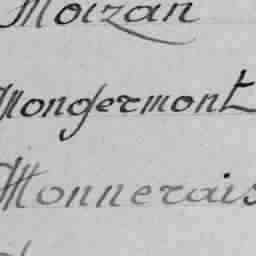 Moizan
Mongermont
Monnerais